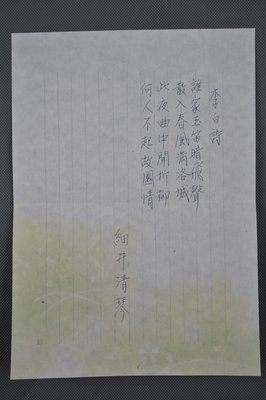 李白詩
誰家玉笛暗飛聲
散入春風滿洛城
此夜曲中聞折柳
何人不起故園情
細井清琴